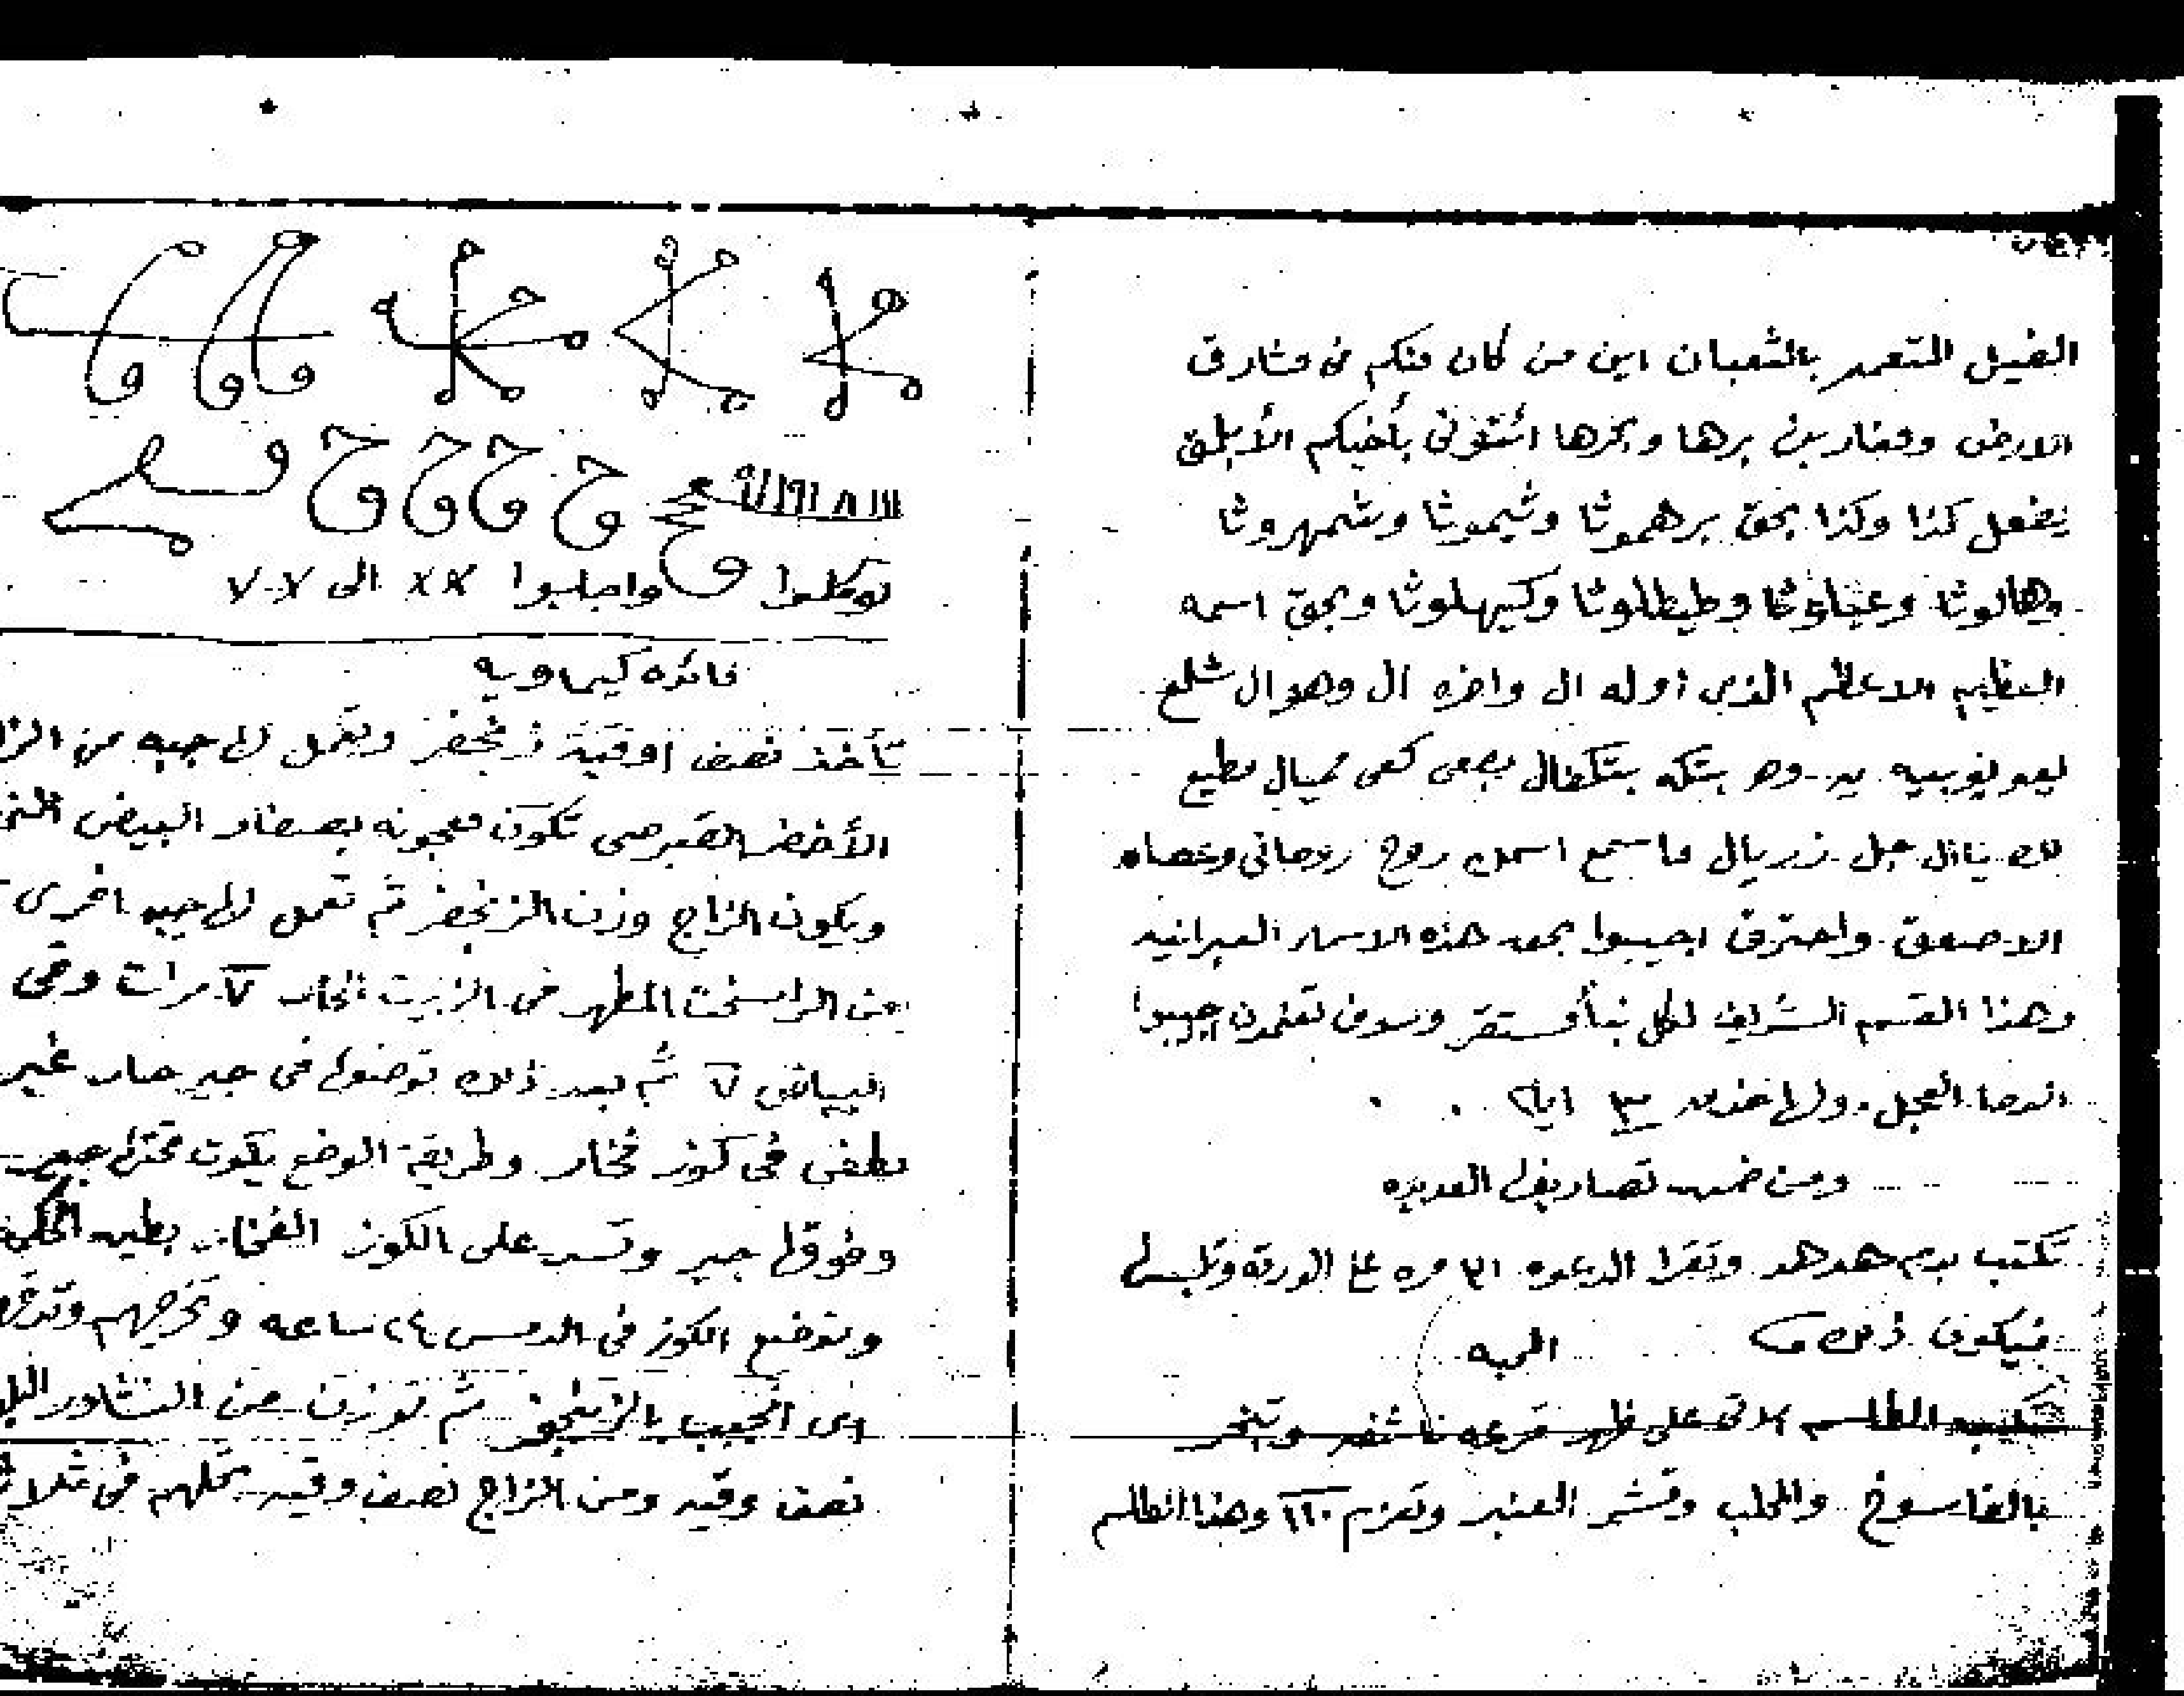 الفيل المتعمم بالثعبان اين من كان منكم في مشارق
الارض ومغاربها برها وبحرها ائتوني بأخيكم الأبلق
يفعل كذا وكذا بحق برهموثا وشيموثا وشمهروثا
وهالوثا وطيطلوثا وكيهلوثا وبحق اسمه
العظيم الاعظم الذي اوله ال واخره ال وهو ال شلع
يعو يوبيه يه وه بتكه بتكفال بصعى كعى ميال مطيع
لك يا ال جل زريال ما سمع اسمك روح روحاني وعصاه
الا صعق واحترق اجيبوا بحق هذه الاسماء العبرانيه
وهذا القسم الشريف لكل نبأ مستقر وسوف تعلمون اجيبوا
الوحا العجل ولها خدمه ٣ ايام
ومن ضمن تصاريفها العديده
تكتب بدم هدهد وتقرا الدعوه ٢١ مره على الورقه وتلبسها
فيكون ذلك
المحبه
تكتب الطلسم الاتي على ظهر قرعه ناشفه وتبخر
بالفاسوخ والمحلب وقشر العنبر وتعزم ١١٠ وهذا الطلسم
توكلوا واجلبوا الى
فائده كيماويه
تأخذ نصف اوقية زنجفر وتعمل لها جبه من الزا
الأخضر القبرصي تكون معجونه بصفار البيض
ويكون الزاج وزن الزنجفر ثم تعمل لها جبه اخرى
من الراسخت المطهر في الزيت الحار ٧ مرات وفي
البياض ٧ ثم بعد ذلك توضعها في جير حار غير
مطفي في كوز فخار وطريقة الوضع يكون تحتها جير
وفوقها جير وتسد على الكوز الفخار بطين الحكمة
وتوضع الكوز في الدمس ٢٤ ساعه وتخرجهم وتدقهم
اى الجبب بالزنجفر ثم توزن من النشادر
نصف وقيه ومن الزاج نصف وقيه تحلهم في ثلاث